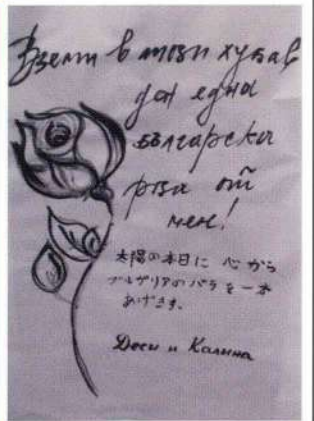 Вземи в този хубав
ден една
българска
роза от
мен!
太陽の本日に 心から
ブルガリアのバラを一本
あげます。
Деси и Калина